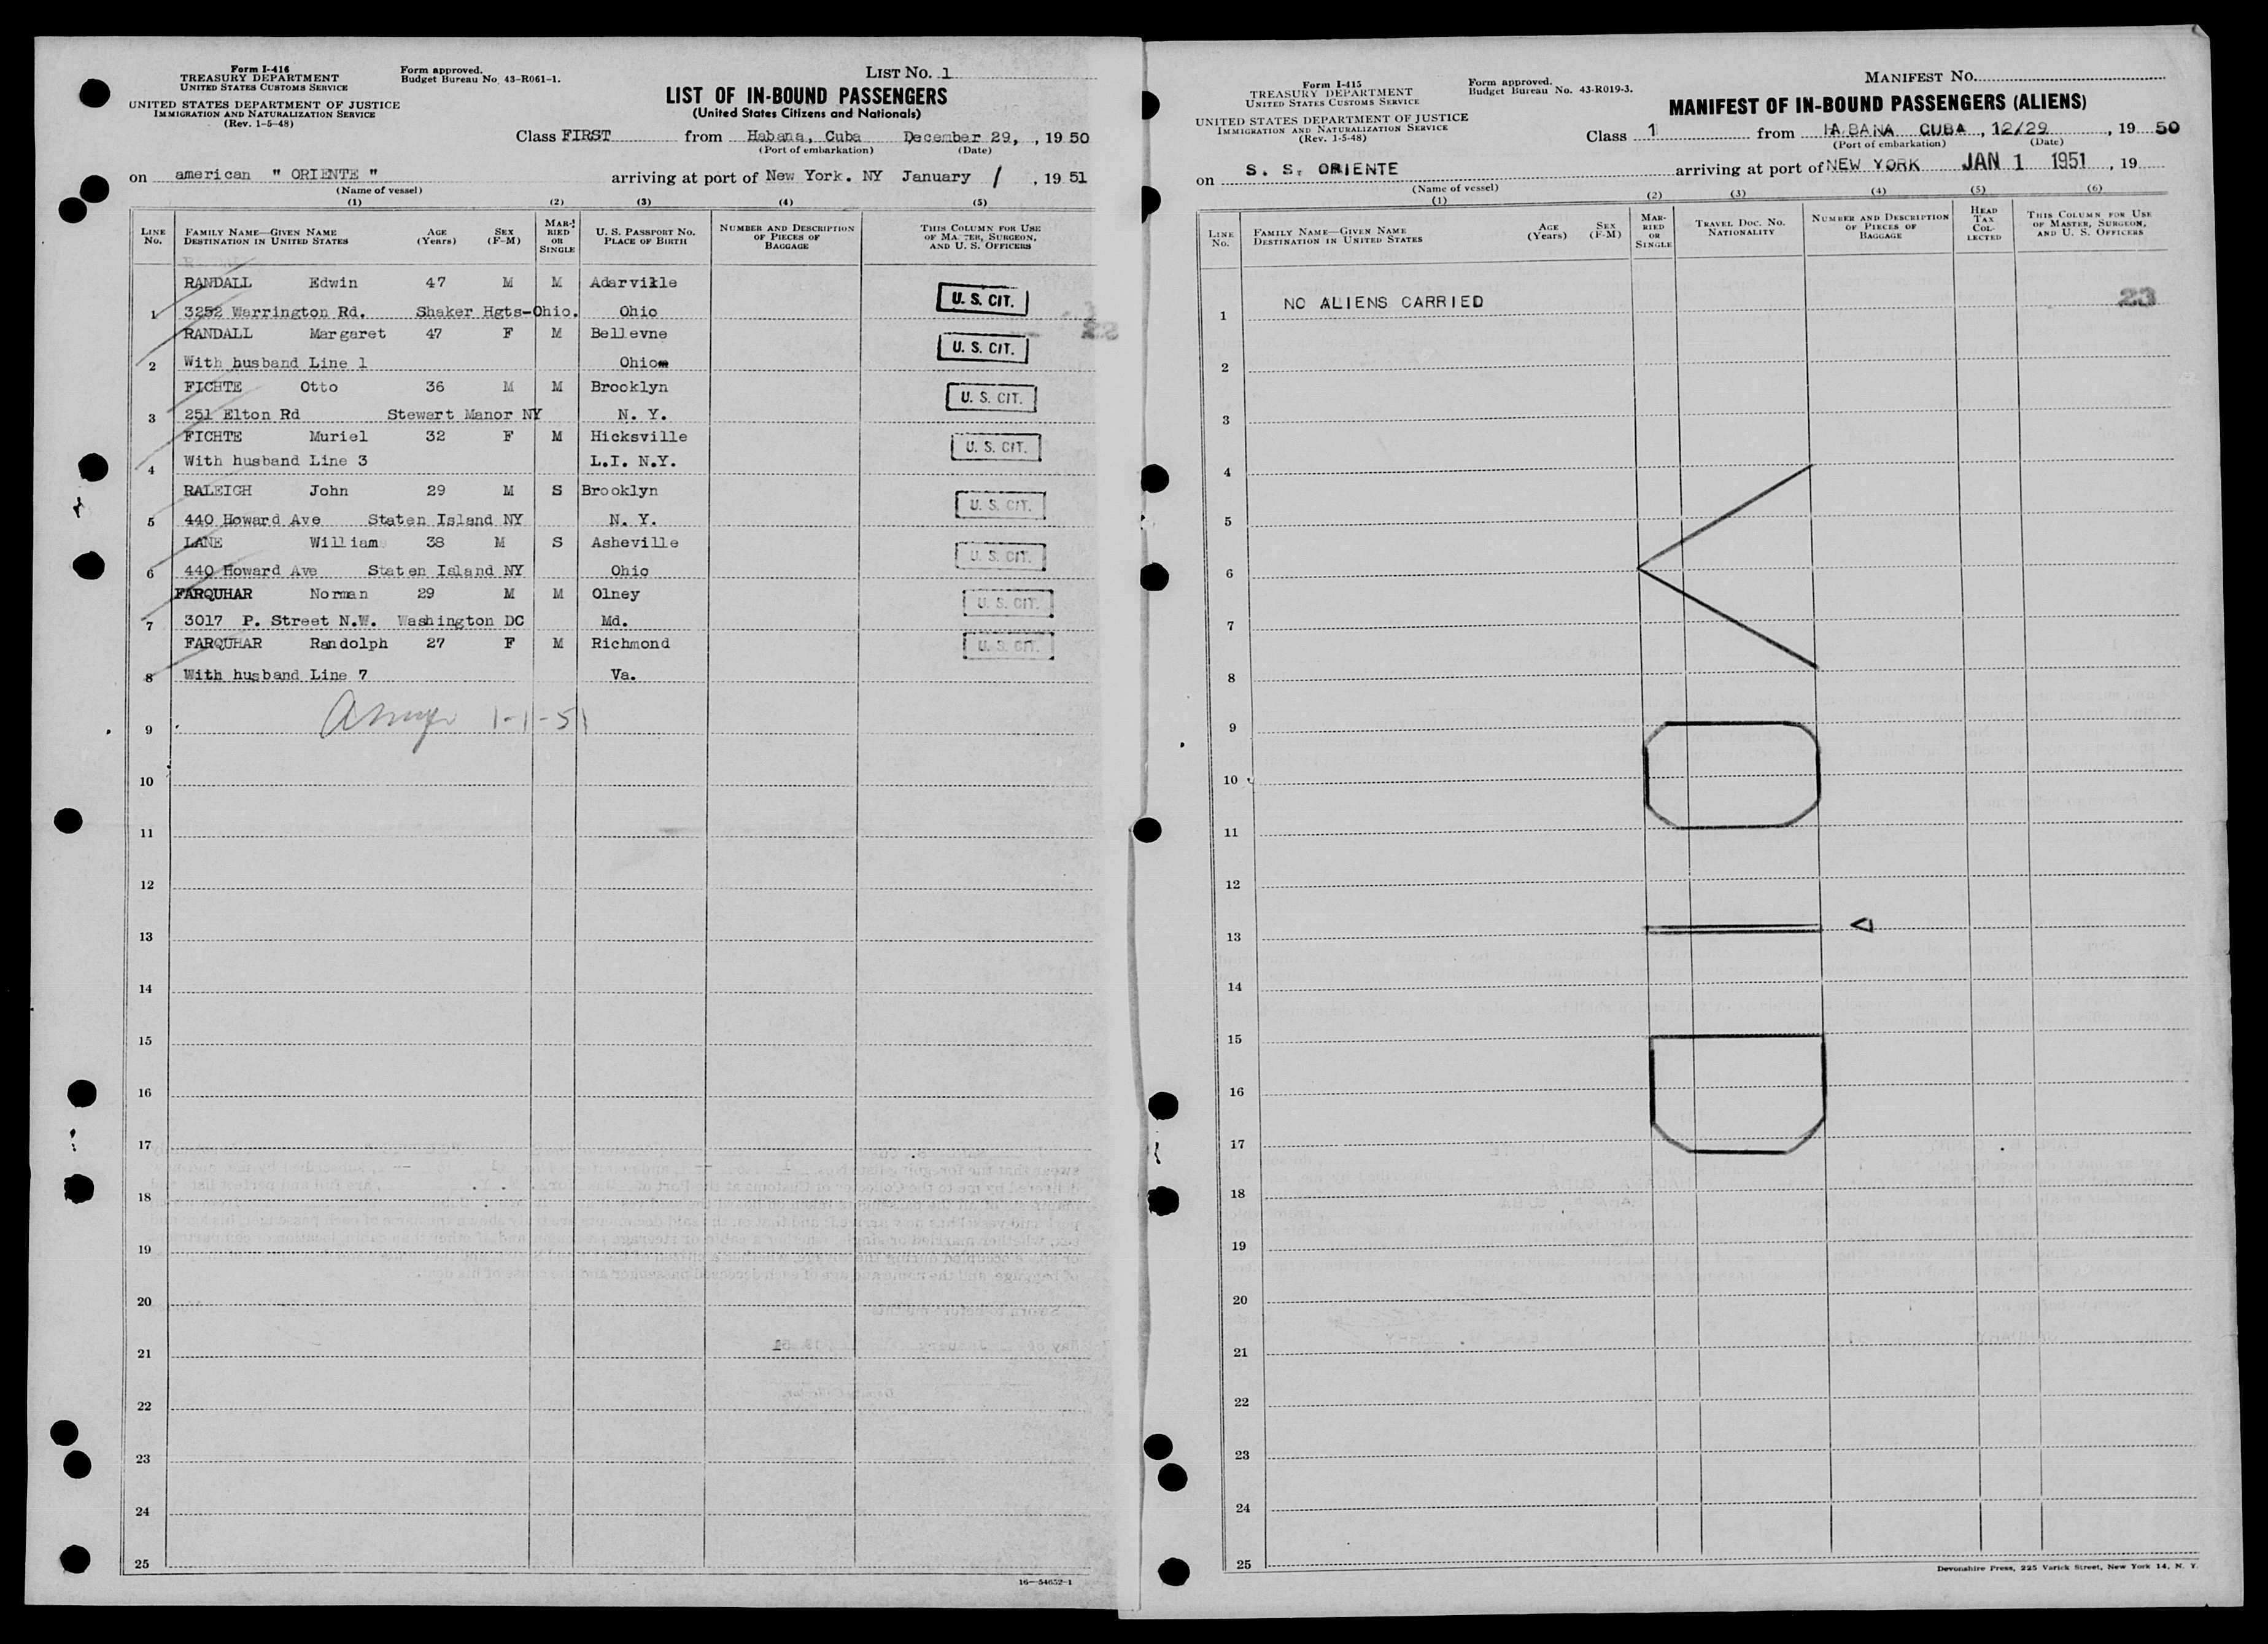 Form I-416
TREASURY DEPARTMENT
UNITED STATES CUSTOMS SERVICE
UNITED STATES DEPARTMENT OF JUSTICE
IMMIGRATION AND NATURALIZATION SERVICE
(Rev. 1-5-48)
Form approved.
Budget Bureau No. 43-R061-1.
LIST NO. 1
LIST OF IN-BOUND PASSENGERS
(United States Citizens and Nationals)
Class FIRST from Habana, Cuba December 29, , 19 50
(Port of embarkation) (Date)
on american " ORIENTE " arriving at port of New York. NY January 1 , 19 51
(Name of vessel)
(1) (2) (3) (4) (5)
LINE No. FAMILY NAME—GIVEN NAME DESTINATION IN UNITED STATES AGE (Years) SEX (F-M) MARRIED OR SINGLE U. S. PASSPORT NO. PLACE OF BIRTH NUMBER AND DESCRIPTION OF PIECES OF BAGGAGE THIS COLUMN FOR USE OF MASTER, SURGEON, AND U. S. OFFICERS
RANDALL Edwin 47 M M Adarville
1 3252 Warrington Rd. Shaker Hgts-Ohio. Ohio U. S. CIT.
RANDALL Margaret 47 F M Bellevne
2 With husband Line 1 Ohio U. S. CIT.
FICHTE Otto 36 M M Brooklyn
3 251 Elton Rd Stewart Manor NY N. Y. U. S. CIT.
FICHTE Muriel 32 F M Hicksville
4 With husband Line 3 L.I. N.Y. U. S. CIT.
RALEIGH John 29 M S Brooklyn
5 440 Howard Ave Staten Island NY N. Y. U. S. CIT.
LANE William 38 M S Asheville
6 440 Howard Ave Staten Island NY Ohio U. S. CIT.
FARQUHAR Norman 29 M M Olney
7 3017 P. Street N.W. Washington DC Md. U. S. CIT.
FARQUHAR Randolph 27 F M Richmond
8 With husband Line 7 Va. U. S. CIT.
1-1-51
9
10
11
12
13
14
15
16
17
18
19
20
21
22
23
24
25
16—54652-1
Form I-415
TREASURY DEPARTMENT
UNITED STATES CUSTOMS SERVICE
UNITED STATES DEPARTMENT OF JUSTICE
IMMIGRATION AND NATURALIZATION SERVICE
(Rev. 1-5-48)
Form approved.
Budget Bureau No. 43-R019-3.
MANIFEST NO.
MANIFEST OF IN-BOUND PASSENGERS (ALIENS)
Class 1 from HABANA CUBA , 12/29 , 19 50
(Port of embarkation) (Date)
on S. S. ORIENTE arriving at port of NEW YORK JAN 1 1951 , 19
(Name of vessel)
(1) (2) (3) (4) (5) (6)
LINE No. FAMILY NAME—GIVEN NAME DESTINATION IN UNITED STATES AGE (Years) SEX (F-M) MARRIED OR SINGLE TRAVEL DOC. NO. NATIONALITY NUMBER AND DESCRIPTION OF PIECES OF BAGGAGE HEAD TAX COLLECTED THIS COLUMN FOR USE OF MASTER, SURGEON, AND U. S. OFFICERS
NO ALIENS CARRIED 23
1
2
3
4
5
6
7
8
9
10
11
12
13
14
15
16
17
18
19
20
21
22
23
24
25
Devonshire Press, 225 Varick Street, New York 14, N. Y.